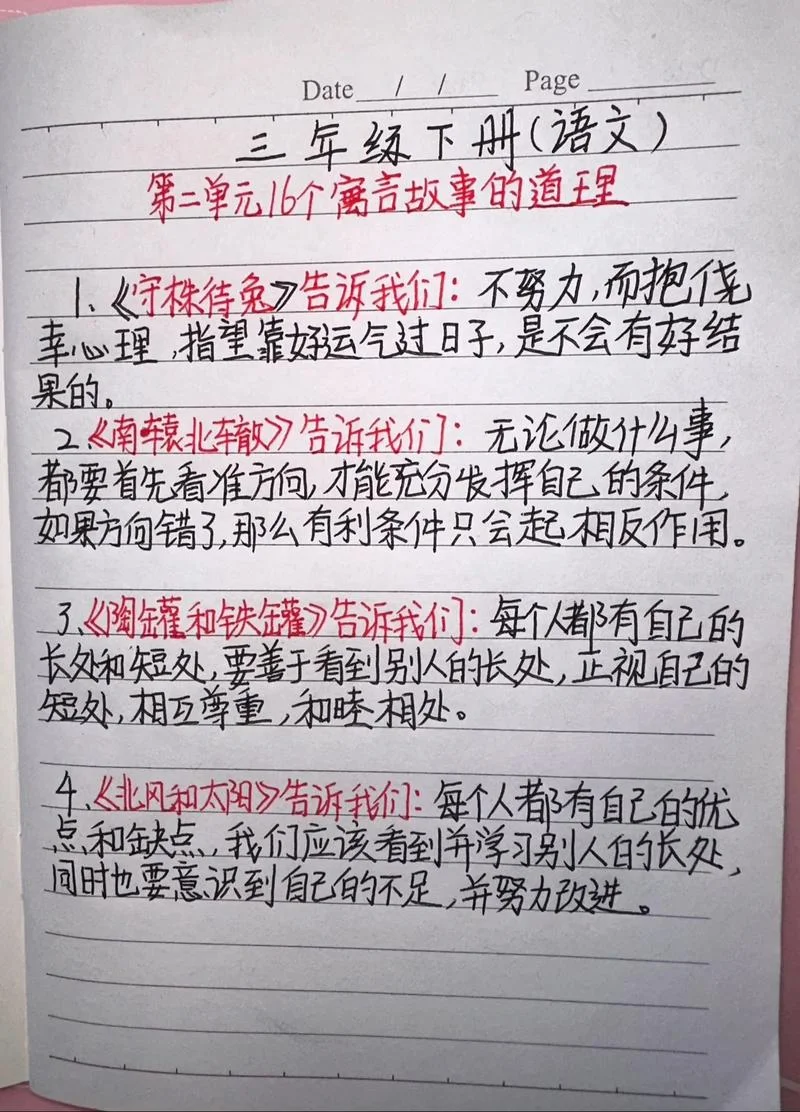 Date / / Page
三年级下册(语文)
第二单元16个寓言故事的道理
1、《守株待兔》告诉我们：不努力,而抱侥
幸心理,指望靠好运气过日子,是不会有好结
果的。
2、《南辕北辙》告诉我们：无论做什么事,
都要首先看准方向,才能充分发挥自己的条件,
如果方向错了,那么有利条件只会起相反作用。
3、《陶罐和铁罐》告诉我们：每个人都有自己的
长处和短处,要善于看到别人的长处,正视自己的
短处,相互尊重,和睦相处。
4、《北风和太阳》告诉我们：每个人都有自己的优
点和缺点,我们应该看到并学习别人的长处,
同时也要意识到自己的不足,并努力改进。